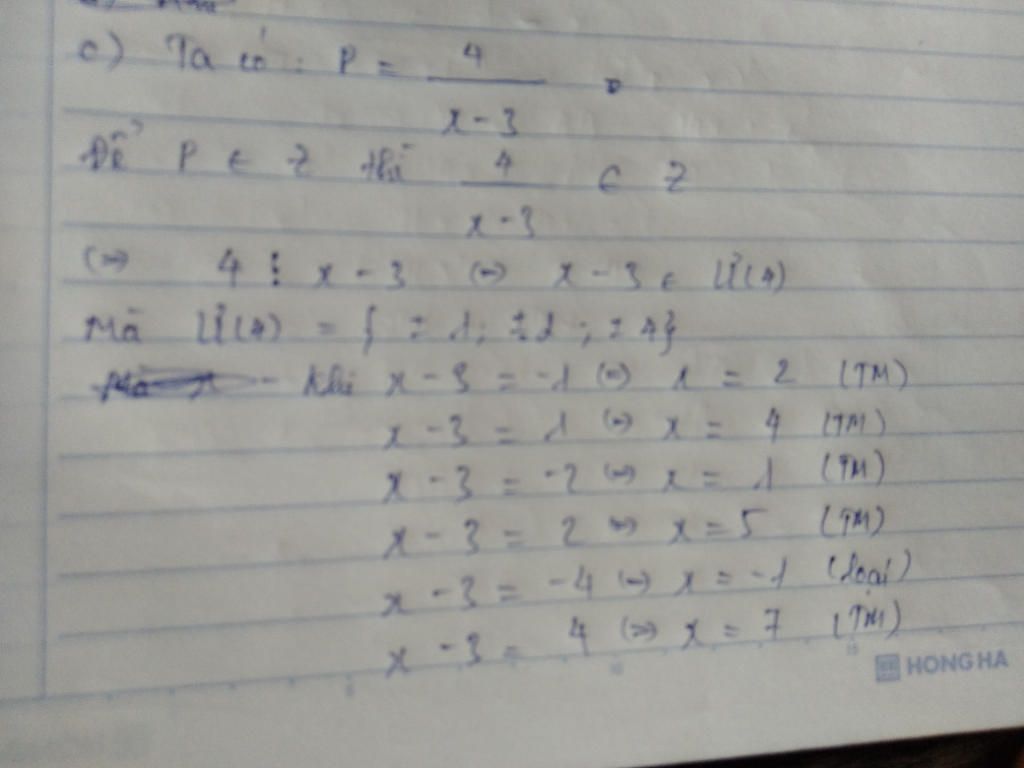 c) Ta có : P = 4 / x - 3
Để P ∈ Z thì 4 / x - 3 ∈ Z
(=) 4 ⋮ x - 3 (=) x - 3 ∈ Ư(4)
Mà Ư(4) = { ±1; ±2; ±4}
- khi x - 3 = -1 (=) x = 2 (TM)
x - 3 = 1 (=) x = 4 (TM)
x - 3 = -2 (=) x = 1 (TM)
x - 3 = 2 (=) x = 5 (TM)
x - 3 = -4 (=) x = -1 (loại)
x - 3 = 4 (=) x = 7 (TM)
HONG HA